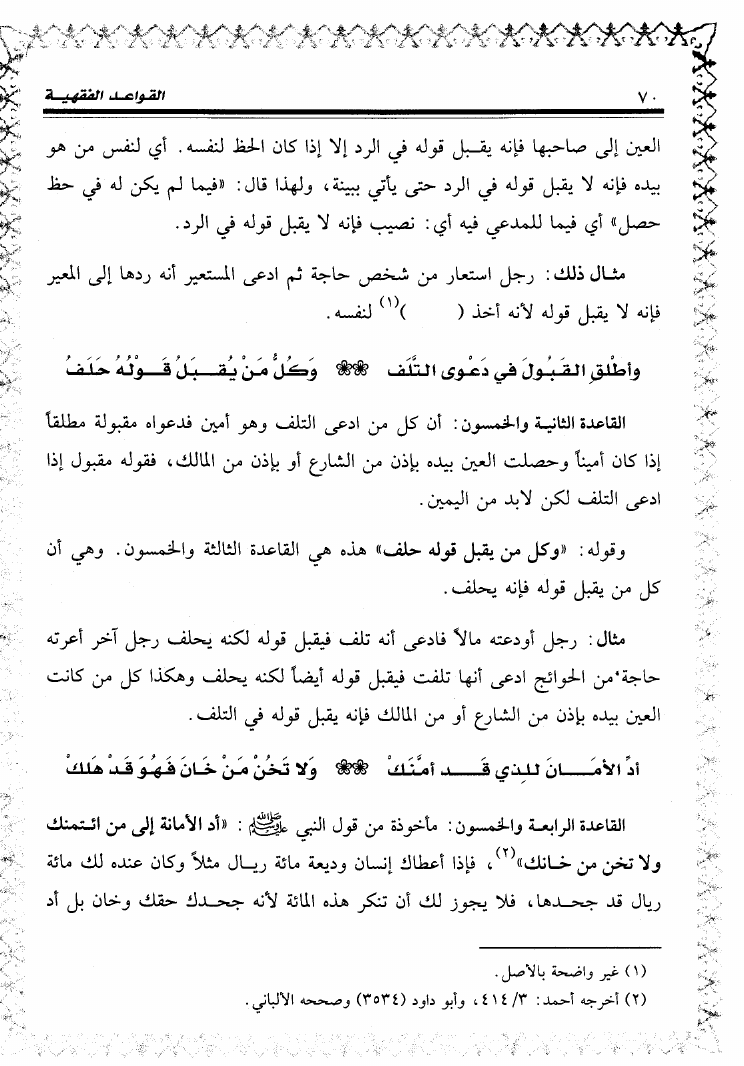 ٧٠ القواعد الفقهية
العين إلى صاحبها فإنه يقبل قوله في الرد إلا إذا كان الحظ لنفسه. أي لنفس من هو
بيده فإنه لا يقبل قوله في الرد حتى يأتي ببينة، ولهذا قال: «فيما لم يكن له في حظ
حصل» أي فيما للمدعي فيه أي: نصيب فإنه لا يقبل قوله في الرد.
مثال ذلك: رجل استعار من شخص حاجة ثم ادعى المستعير أنه ردها إلى المعير
فإنه لا يقبل قوله لأنه أخذ ( )(١) لنفسه.
وأطْلقِ القَبُولَ في دَعْوى التَّلَف ❀❀ وَكُلُّ مَنْ يُقبَلُ قَوْلُهُ حَلَفُ
القاعدة الثانية والخمسون: أن كل من ادعى التلف وهو أمين فدعواه مقبولة مطلقاً
إذا كان أميناً وحصلت العين بيده بإذن من الشارع أو بإذن من المالك، فقوله مقبول إذا
ادعى التلف لكن لابد من اليمين.
وقوله: «وكل من يقبل قوله حلف» هذه هي القاعدة الثالثة والخمسون. وهي أن
كل من يقبل قوله فإنه يحلف.
مثال: رجل أودعته مالاً فادعى أنه تلف فيقبل قوله لكنه يحلف رجل آخر أعرته
حاجة من الحوائج ادعى أنها تلفت فيقبل قوله أيضاً لكنه يحلف وهكذا كل من كانت
العين بيده بإذن من الشارع أو من المالك فإنه يقبل قوله في التلف.
أدِّ الأمَانَ للذي قَد أمَّنَكْ ❀❀ وَلا تَخُنْ مَنْ خَانَ فَهُوَ قَدْ هَلَكْ
القاعدة الرابعة والخمسون: مأخوذة من قول النبي ﷺ: «أد الأمانة إلى من ائتمنك
ولا تخن من خانك»(٢)، فإذا أعطاك إنسان وديعة مائة ريال مثلاً وكان عنده لك مائة
ريال قد جحدها، فلا يجوز لك أن تنكر هذه المائة لأنه جحدك حقك وخان بل أد
(١) غير واضحة بالأصل.
(٢) أخرجه أحمد: ٤١٤/٣، وأبو داود (٣٥٣٤) وصححه الألباني.